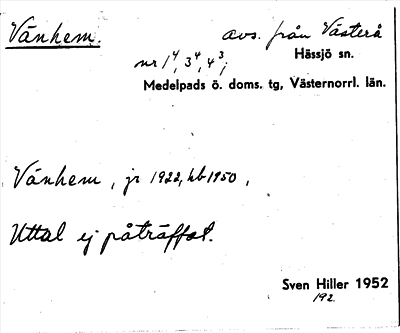 Vänhem. avs. från Västerå
Hässjö sn.
nr 1⁴, 3⁴, 4³;
Medelpads ö. doms. tg, Västernorrl. län.
Vänhem, jr 1922, hb 1950,
Uttal ej påträffat.
Sven Hiller 1952
192